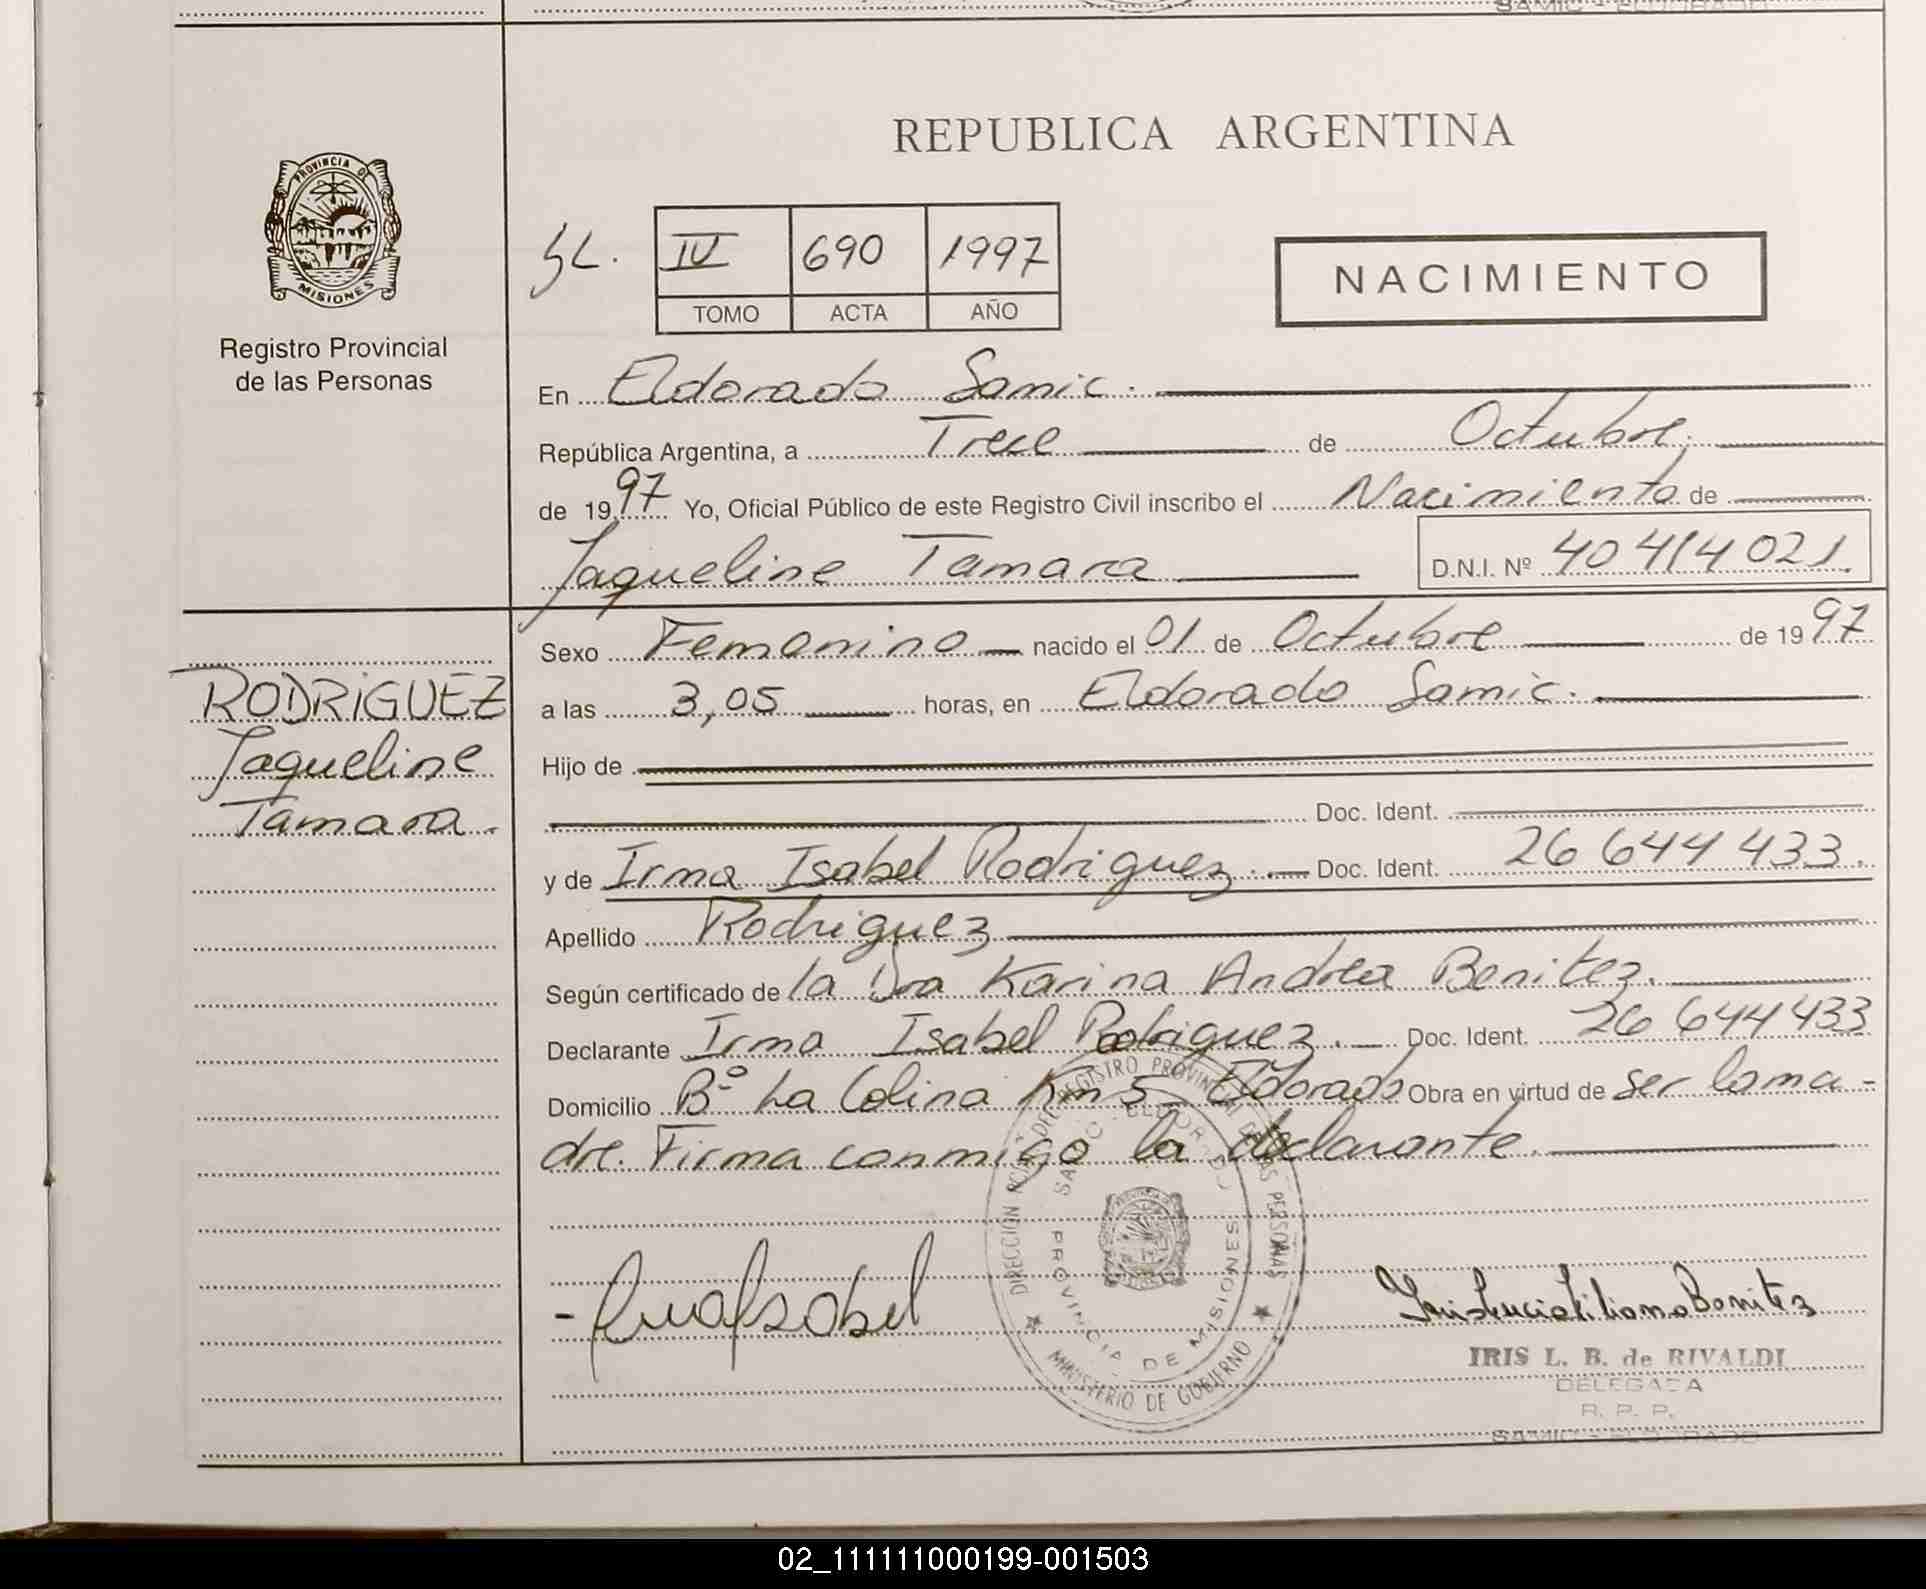 PROVINCIA DE
MISIONES
Registro Provincial
de las Personas
REPUBLICA ARGENTINA
IV 690 1997
TOMO ACTA AÑO
NACIMIENTO
En Eldorado Samic.
República Argentina, a Trece de Octubre.
de 1997 Yo, Oficial Público de este Registro Civil inscribo el Nacimiento de
Jaqueline Tamara D.N.I. Nº 40414021.
Sexo Femenino nacido el 01 de Octubre de 1997
a las 3,05 horas, en Eldorado Samic.
Hijo de
Doc. Ident.
y de Irma Isabel Rodriguez. Doc. Ident. 26 644 433.
Apellido Rodriguez
Según certificado de la Dra Karina Andrea Benitez.
Declarante Irma Isabel Rodriguez. Doc. Ident. 26 644 433
Domicilio Bº La Colina Km 5 Eldorado Obra en virtud de ser la ma-
dre. Firma conmigo la declarante.
RODRIGUEZ
Jaqueline
Tamara.
DIRECCION DEL REGISTRO PROVINCIAL DE LAS PERSONAS
SAMIC - ELDORADO
PROVINCIA DE MISIONES
MINISTERIO DE GOBIERNO
IRIS L. B. de RIVALDI
DELEGADA
R. P. P.
SAMIC - ELDORADO
02_111111000199-001503